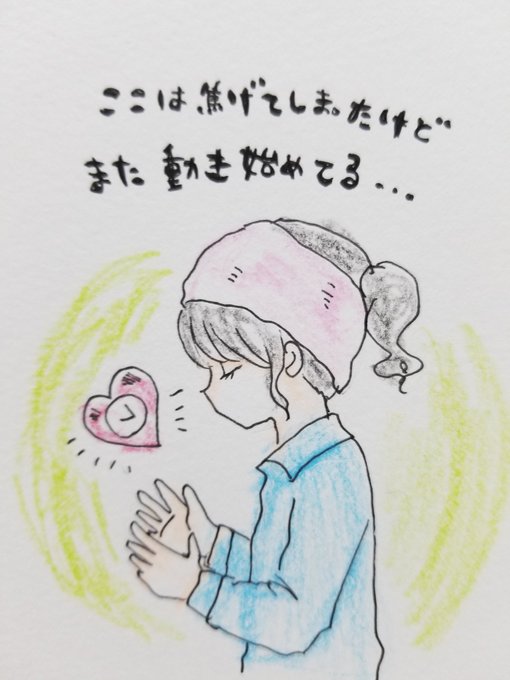 ここは焦げてしまったけど
また動き始めてる...